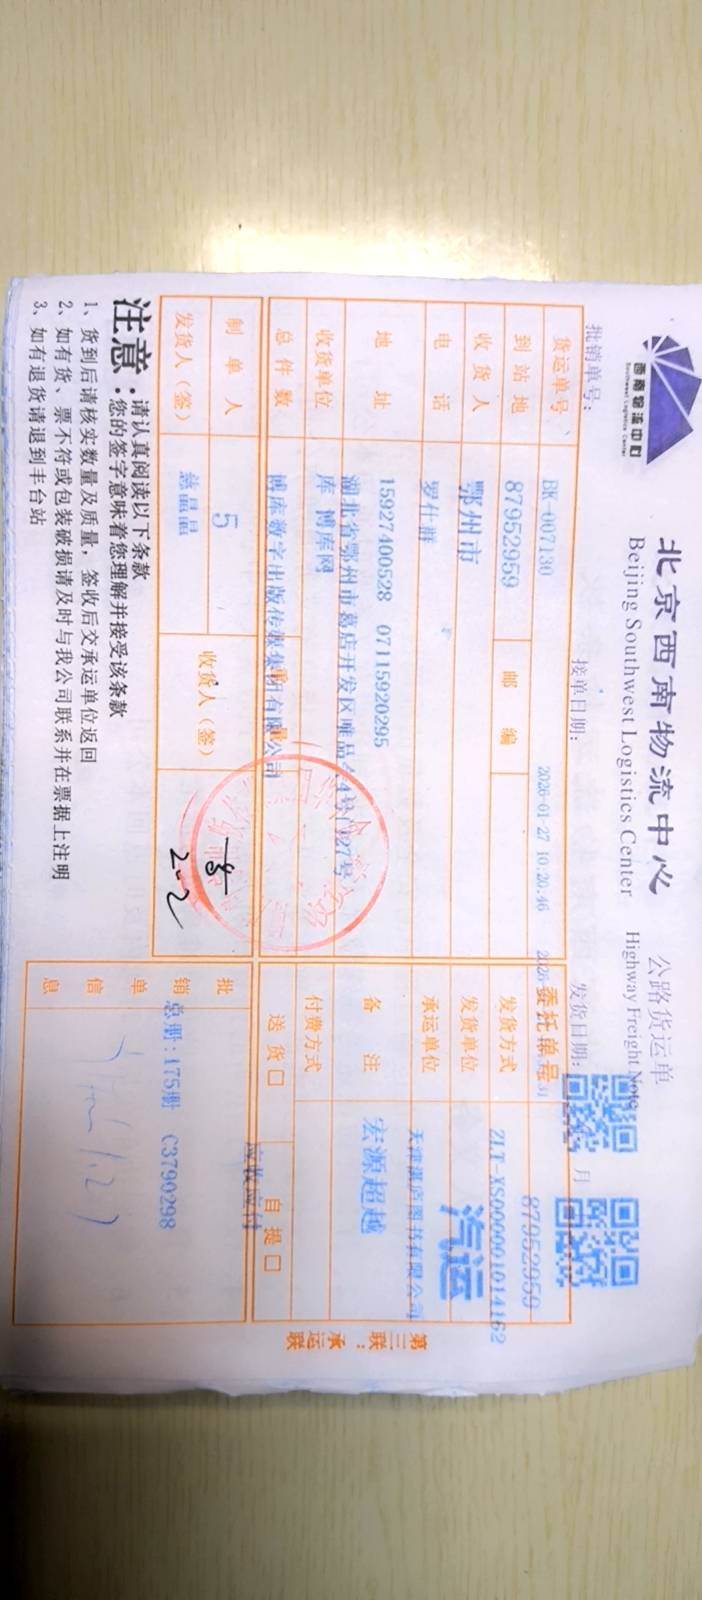 西南物流中心
Southwest Logistics Center
北京西南物流中心
Beijing Southwest Logistics Center
公路货运单
Highway Freight Note
批销单号：
接单日期：
发货日期：
月
2026-01-27 10:20:46
货运单号 BK-007130
委托单号 87952959
到站地 87952959 邮编
发货方式 ZLT-XS0000001014162
收货人 鄂州市
发货单位 汽运
电话 罗仕群
承运单位 天津湛庐图书有限公司
地址 15927400528 07115920295
备注 宏源超越
湖北省鄂州市葛店开发区唯品
收货单位 库 博库网
付费方式
总件数 博库数字出版传媒集团有限公司
送货□ 自提□
应收应付
制单人 5
收货人（签）
发货人（签） 慈晶晶
2-2
批销单信息
总册：175册 C3790298
1.27
第三联：承运联
注意：请认真阅读以下条款
您的签字意味着您理解并接受该条款
1、货到后请核实数量及质量，签收后交承运单位返回
2、如有货、票不符或包装破损请及时与我公司联系并在票据上注明
3、如有退货请退到丰台站